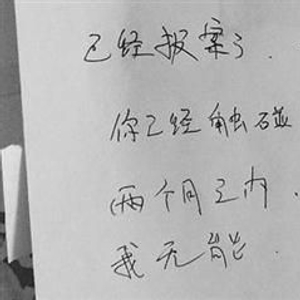 已经报案了.
你已经触碰
两个月之内.
我无能